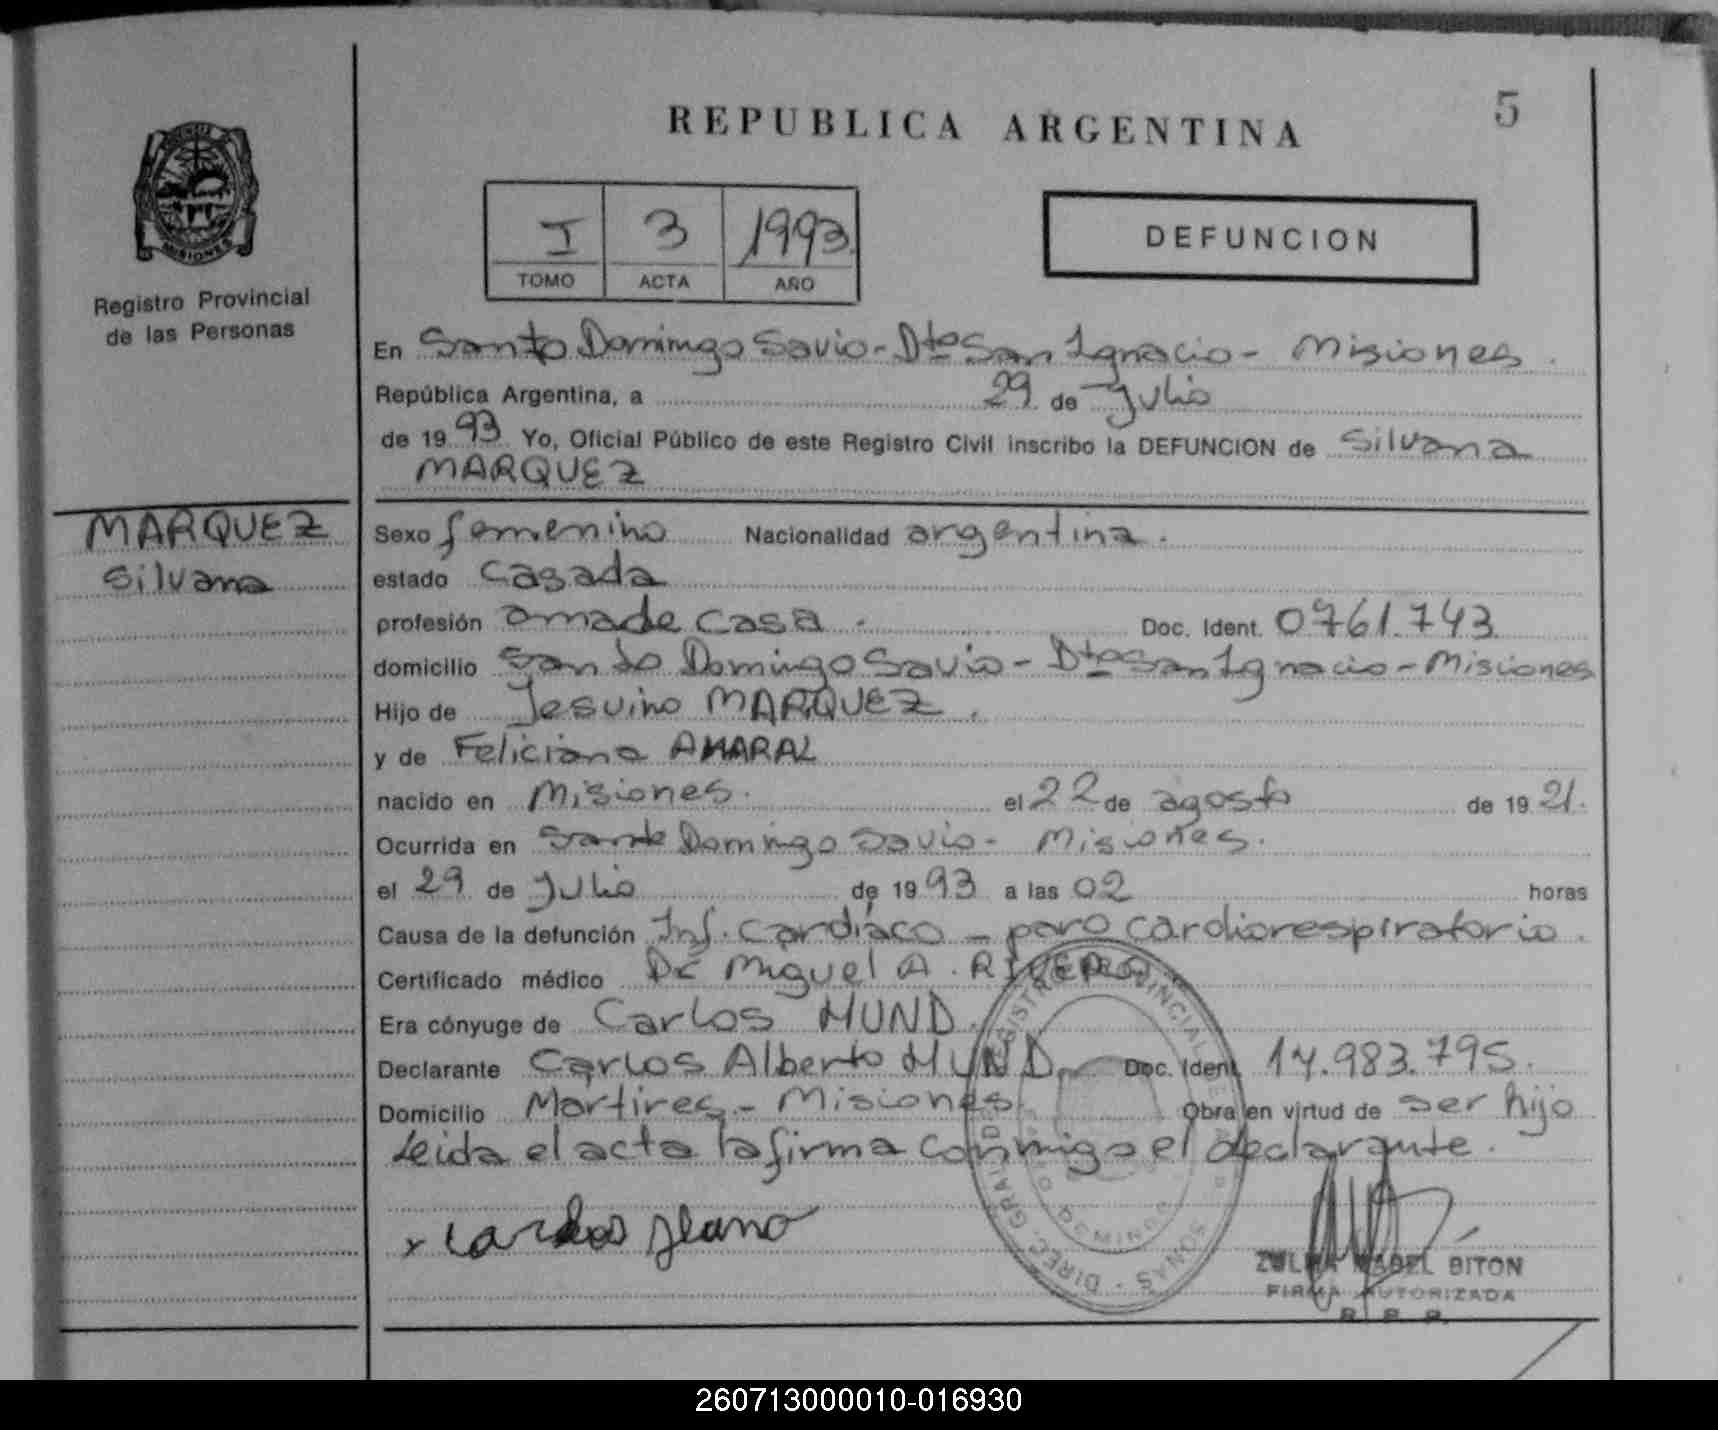 5
REPUBLICA ARGENTINA
MISIONES
Registro Provincial
de las Personas
I 3 1993
TOMO ACTA AÑO
DEFUNCION
En Santo Domingo Savio - Dto San Ignacio - Misiones
República Argentina, a 29 de Julio
de 19 93 Yo, Oficial Público de este Registro Civil inscribo la DEFUNCION de Silvana
MARQUEZ
MARQUEZ
Silvana
Sexo femenino Nacionalidad argentina.
estado Casada
profesión ama de casa. Doc. Ident. 0761.743
domicilio Santo Domingo Savio - Dto San Ignacio - Misiones
Hijo de Jesuino MARQUEZ.
y de Feliciana AMARAL
nacido en Misiones. el 22 de agosto de 19 21.
Ocurrida en Santo Domingo Savio - Misiones.
el 29 de Julio de 19 93 a las 02 horas
Causa de la defunción Inf. Cardíaco - paro cardiorespiratorio.
Certificado médico Dr Miguel A. RIVERO
Era cónyuge de Carlos MUND.
Declarante Carlos Alberto MUND Doc. Ident. 14.983.795.
Domicilio Martires - Misiones Obra en virtud de ser hijo
Leida el acta la firma conmigo el declarante.
x Carlos
ZULMA MABEL BITON
FIRMA AUTORIZADA
R. P. P.
260713000010-016930